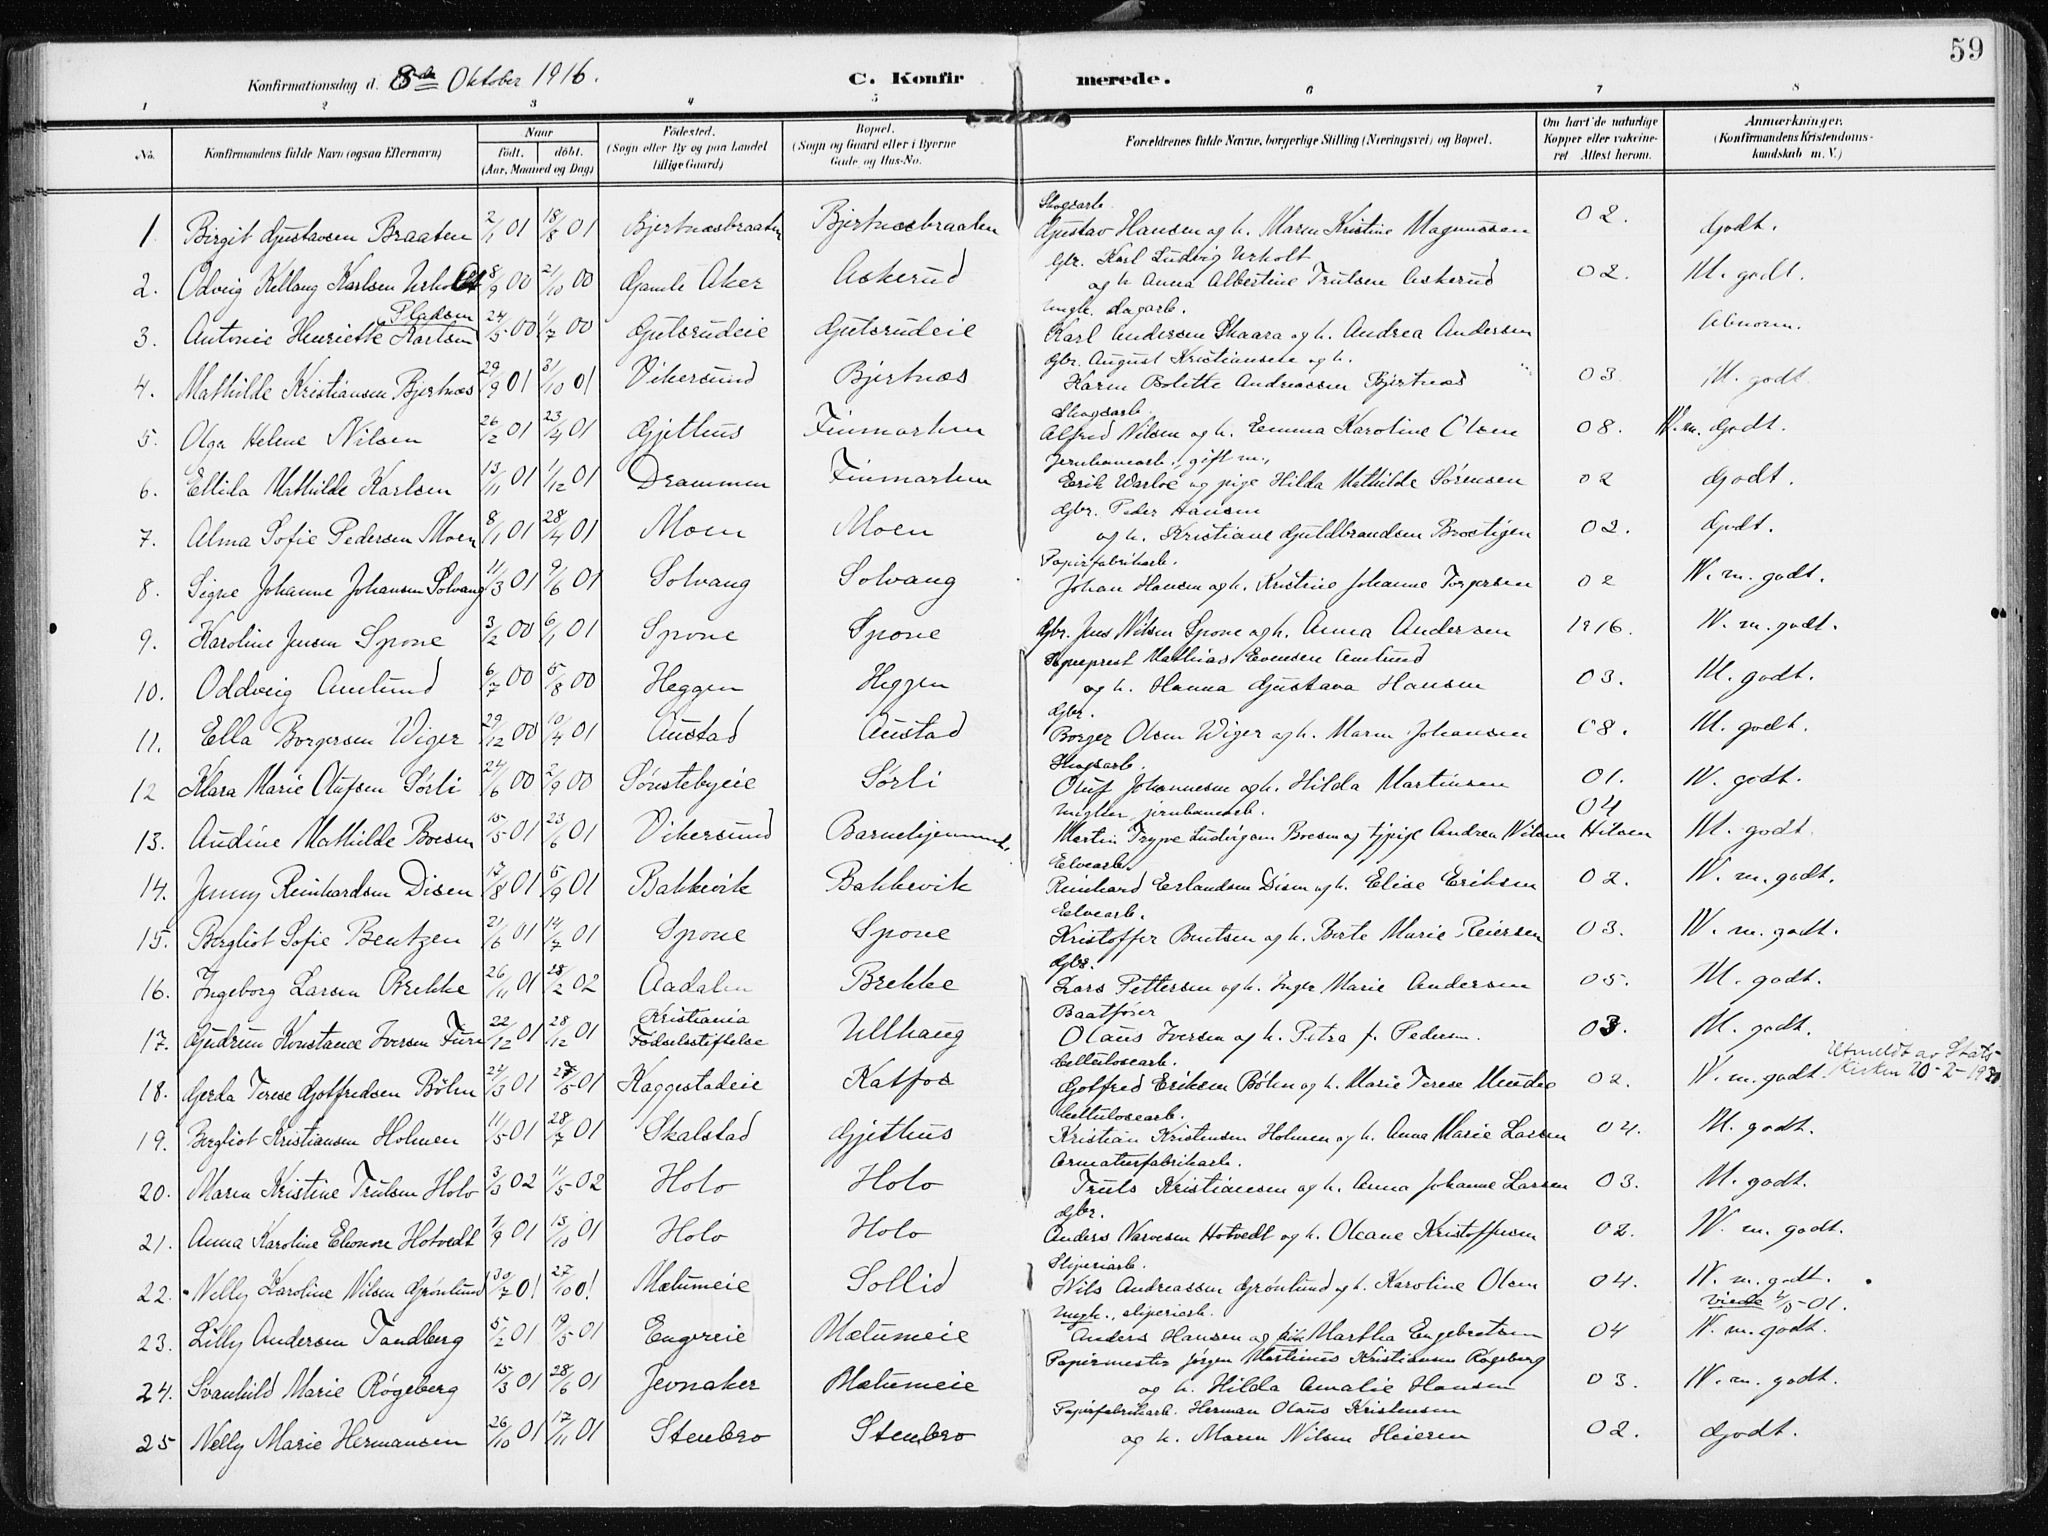 59
Konfirmationsdag d. 8de Oktober 1916. C. Konfirmerede.
1 2 3 4 5 6 7 8
No. Konfirmandens fulde Navn (ogsaa Efternavn) Naar født, døbt. (Aar, Maaned og Dag) Fødested. (Sogn eller By og paa Landet tillige Gaard) Bopæl. (Sogn og Gaard eller i Byerne Gade og Hus-No. Forældrenes fulde Navne, borgerlige Stilling (Næringsvei) og Bopæl. Om havt de naturlige Kopper eller vakcineret Attest herom. Anmærkninger. (Konfirmandens Kristendomskundskab m. V.)
Skogsarb.
1. Birgit Gustavsen Braaten 2/1 01 18/8 01 Bjertnæsbraaten Bjertnæsbraaten Gustav Hansen og h. Maren Kristine Magnussen 02. Godt.
Gbr. Karl Ludvig Urholt
2. Odveig Kellaug Karlsen Urholt 8/9 00 21/10 00 Gamle Aker Askerud og h Anna Albertine Trulsen Askerud 02. M. godt.
Pladsen ungk. dagarb.
3. Antonie Henriette Karlsen 24/5 00 1/7 00 Gutsrudeie Gutsrudeie Karl Andersen Skaara og h. Andrea Andersen Abnorm.
Gbr. August Kristiansen og h.
4. Mathilde Kristiansen Bjertnæs 29/9 01 31/10 01 Vikersund Bjertnæs Karen Bolette Andreassen Bjertnæs 03. M. godt
Skogsarb.
5. Olga Helene Nilsen 26/2 01 23/4 01 Gjethus Finmarken Alfred Nilsen og h. Emma Karoline Olsen 08. N. m. Godt.
Jernbanearb., gift m.,
6. Ellida Mathilde Karlsen 13/11 01 1/12 01 Drammen Finmarken Erik Warloe og pige Hilda Mathilde Sørensen 02 Godt.
Gbr. Peder Hansen
7. Alma Sofie Pedersen Moen 8/1 01 28/4 01 Moen Moen og h. Kristiane Guldbrandsen Brostigen 02. Godt.
Papirfabrikarb.
8. Signe Johanne Johansen Solvang 11/3 01 9/6 01 Solvang Solvang Johan Hansen og h. Kristine Johanne Torgersen 02 N. m. godt.
9. Karoline Jensen Spone 3/2 00 6/1 01 Spone Spone Gbr. Jens Nilsen Spone og h. Anna Andersen 1916. N. m. godt.
Sogneprest Mathias Evensen Amlund
10. Oddveig Amlund 6/7 00 5/8 00 Heggen Heggen og h. Hanna Gustava Hansen 03. M. godt.
Gbr.
11. Ella Borgersen Wiger 29/12 00 10/4 01 Austad Austad Borger Olsen Wiger og h. Maren Johansen 08. M. godt.
Skogsarb.
12 Klara Marie Olufsen Sørli 24/6 00 2/9 00 Sønstebyeie Sørli Oluf Johannesen og h. Hilda Martinsen 01. N. godt.
ungkar, jernbanearb. 04
13. Audine Mathilde Boesen 15/5 01 23/6 01 Vikersund Barnehjemmet. Martin Trygve Ludvigsen Boesen og tjpige Andrea Nilsen Hilsen M. godt.
Elvearb.
14. Jenny Reinhardsen Disen 17/8 01 5/9 01 Bakkevik Bakkevik Reinhard Erlandsen Disen og h. Elise Eriksen 02. N. m. godt.
Elvearb.
15. Bergliot Sofie Bentzen 21/6 01 14/7 01 Spone Spone Kristoffer Bentsen og h. Berte Marie Reiersen 03. N. m. godt.
Gbr.
16. Ingeborg Larsen Brekke 26/11 01 28/2 02 Aadalen Brekke Lars Pettersen og h. Inger Marie Andersen 05. M. godt.
Kristiania Baatfører
17. Gudrun Konstance Iversen Furu 22/12 01 28/12 01 Fødselsstiftelse Ullhaug Olaus Iversen og h. Petra f. Pedersen. 03. M. godt.
Cellulosearb. Utmeldt av Stats-
18. Gerda Terese Gotfredsen Böhn 24/3 01 27/5 01 Kaggestadeie Katfos Gotfred Eriksen Böhn og h. Marie Terese Mendie 02. N. m. godt. kirken 20-2-1930
Cellulosearb.
19. Bergliot Kristiansen Holmen 11/5 01 28/7 01 Skalstad Gjethus Kristian Kristensen Holmen og h. Anna Marie Larsen 04. M. godt.
Armaturfabrikarb.
20. Maren Kristine Trulsen Holo 3/3 02 11/5 02 Holo Holo Truls Kristiansen og h. Anna Johanne Larsen 03. M. godt.
Gbr.
21. Anna Karoline Elionore Hotvedt 7/9 01 13/10 01 Holo Holo Anders Narvesen Hotvedt og h. Oleane Kristoffersen 02. N. m. godt.
Sliperiarb.
22. Nelly Karoline Nilsen Grönlund 30/7 01 27/10 01 Mælumeie Sollid Nils Andreassen Grönlund og h. Karoline Olsen 04. N. m. godt.
ungk. sliperiarb. viede 4/5-01.
23. Lilly Andersen Tandberg 5/2 01 19/5 01 Engereie Mælumeie Anders Hansen og pike Martha Engebretsen 04 N. m. godt.
Papirmester Jørgen Martinus Kristiansen Røgeberg
24. Svanhild Marie Røgeberg 15/3 01 28/6 01 Jevnaker Mælumeie og h. Hilda Amalie Hansen 03. N. m. godt.
Papirfabrikarb. Herman Olaus Kristensen
25 Nelly Marie Hermansen 26/10 01 17/11 01 Stenbro Stenbro og h. Maren Nilsen Heieren 02. Godt.